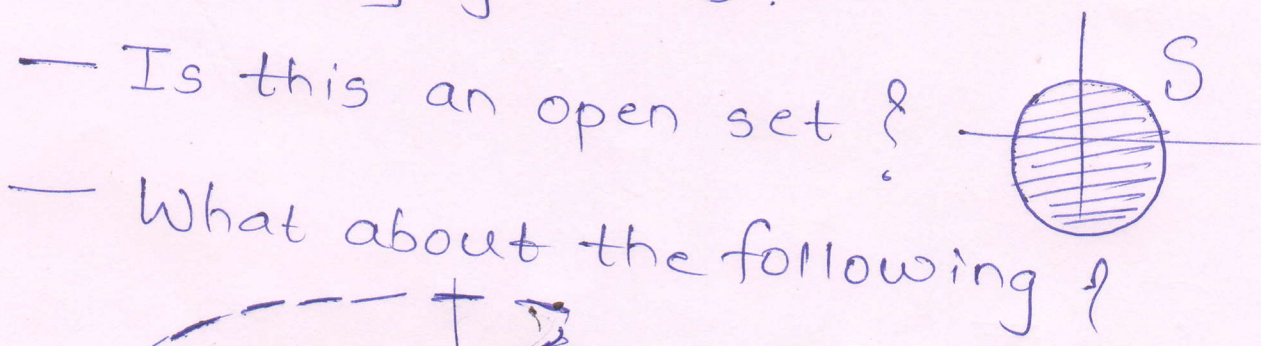 — Is this an open set ? S
— What about the following ?